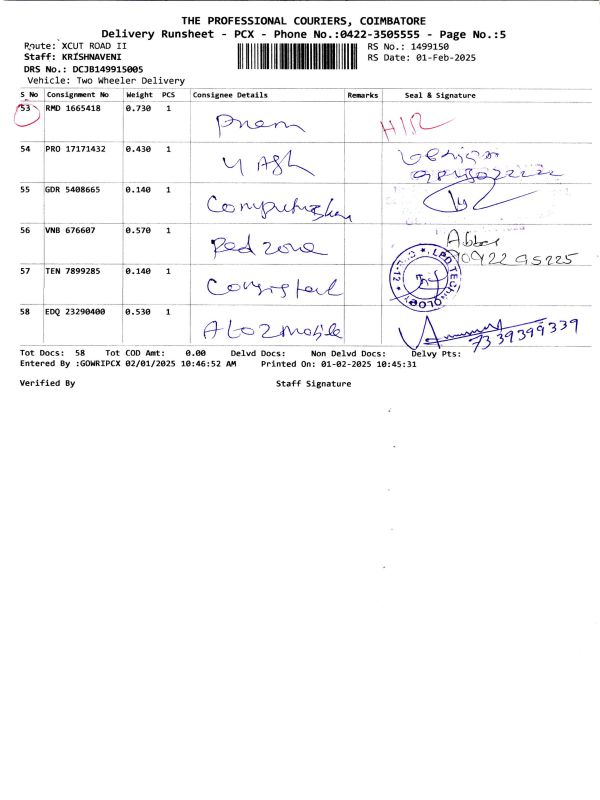 THE PROFESSIONAL COURIERS, COIMBATORE
Delivery Runsheet - PCX - Phone No.:0422-3505555 - Page No.:5
Route: XCUT ROAD II
RS No.: 1499150
Staff: KRISHNAVENI
RS Date: 01-Feb-2025
DRS No.: DCJB149915005
Vehicle: Two Wheeler Delivery
S No Consignment No Weight PCS Consignee Details Remarks Seal & Signature
53 RMD 1665418 0.730 1 Prem
54 PRO 17171432 0.430 1 Yash
55 GDR 5408665 0.140 1
56 VNB 676607 0.570 1 Red zone Abbas
57 TEN 7899285 0.140 1 LPD TECHNOLOGY
58 EDQ 23290400 0.530 1 A to Z mobile 7339399339
Tot Docs: 58 Tot COD Amt: 0.00 Delvd Docs: Non Delvd Docs: Delvy Pts:
Entered By :GOWRIPCX 02/01/2025 10:46:52 AM Printed On: 01-02-2025 10:45:31
Verified By Staff Signature